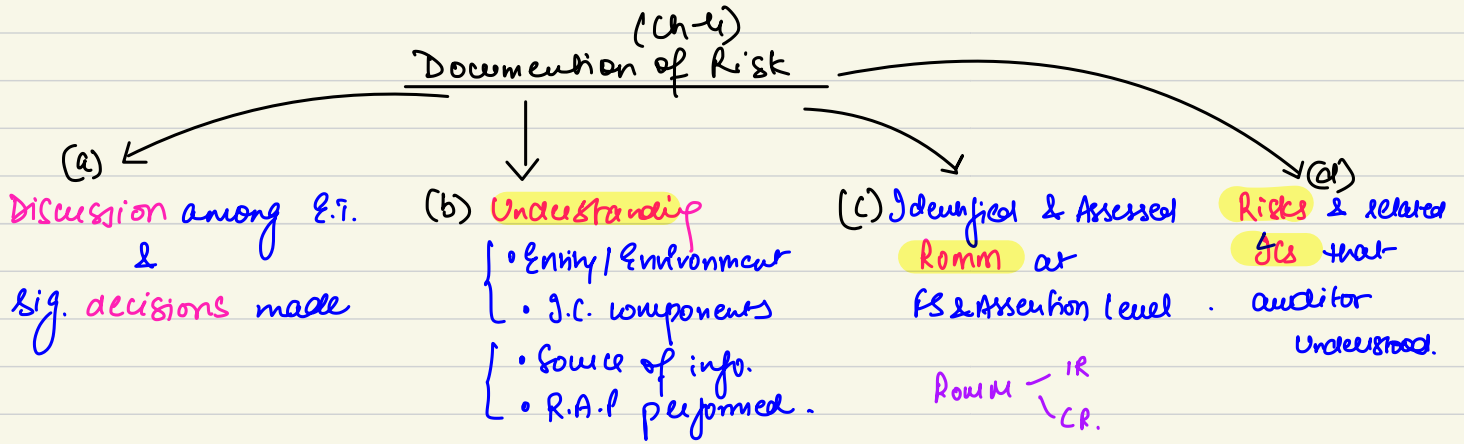 (Ch-4)
Documention of Risk
(a)
Discussion among E.T.
&
Sig. decisions made
(b) Understanding
• Entity/Environment
• I.C. components
• Source of info.
• R.A.P performed.
(c) Identified & Assessed
Romm at
FS & Assertion level.
Romm
IR
CR.
(d)
Risks & related
ICs that
auditor
understood.